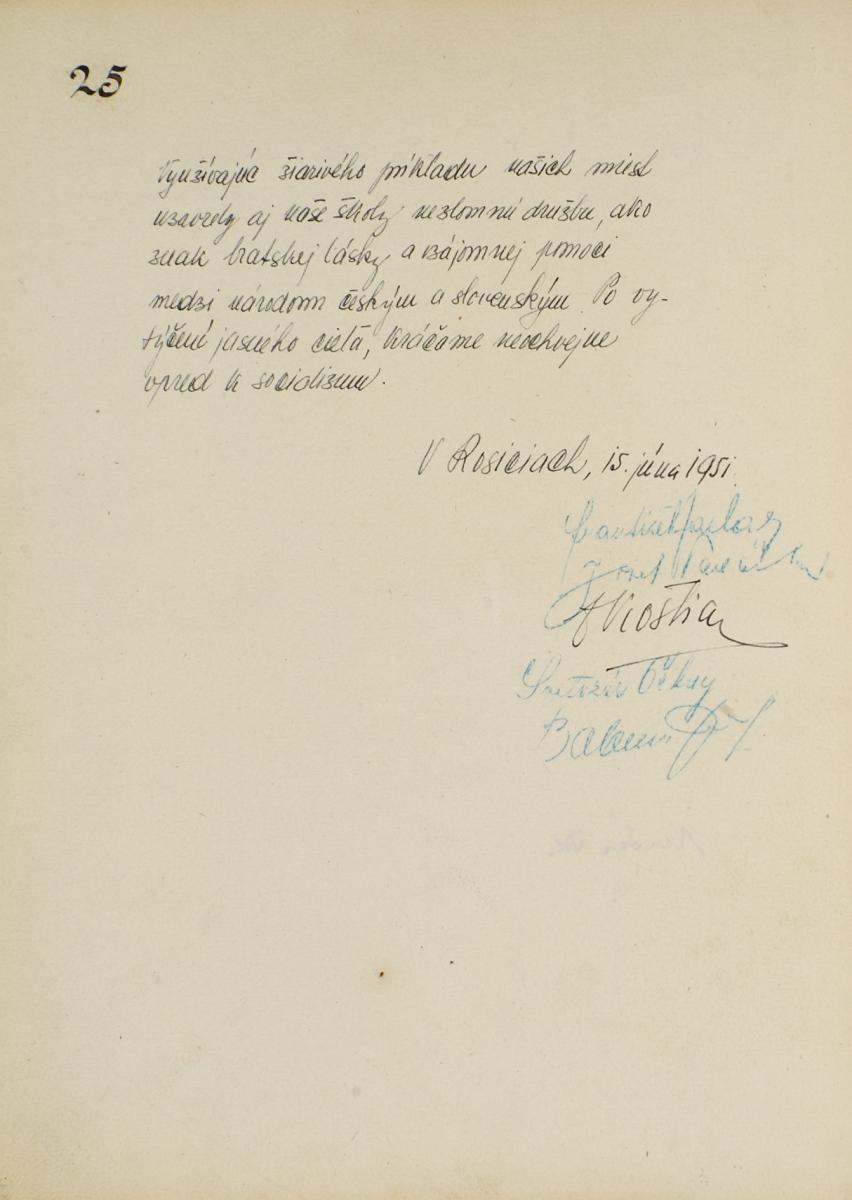 25
Využívajúc žiarivého príkladu našich miest
uzavrely aj naše školy nezlomnú družbu, ako
znak bratskej lásky a vzájomnej pomoci
medzi národom českým a slovenským. Po vy-
týčení jasného cieľa, kráčame neochvejne
vpred k socializmu.
V Rosiciach, 15. júna 1951.
František
Jozef
Kostia
Svetozár